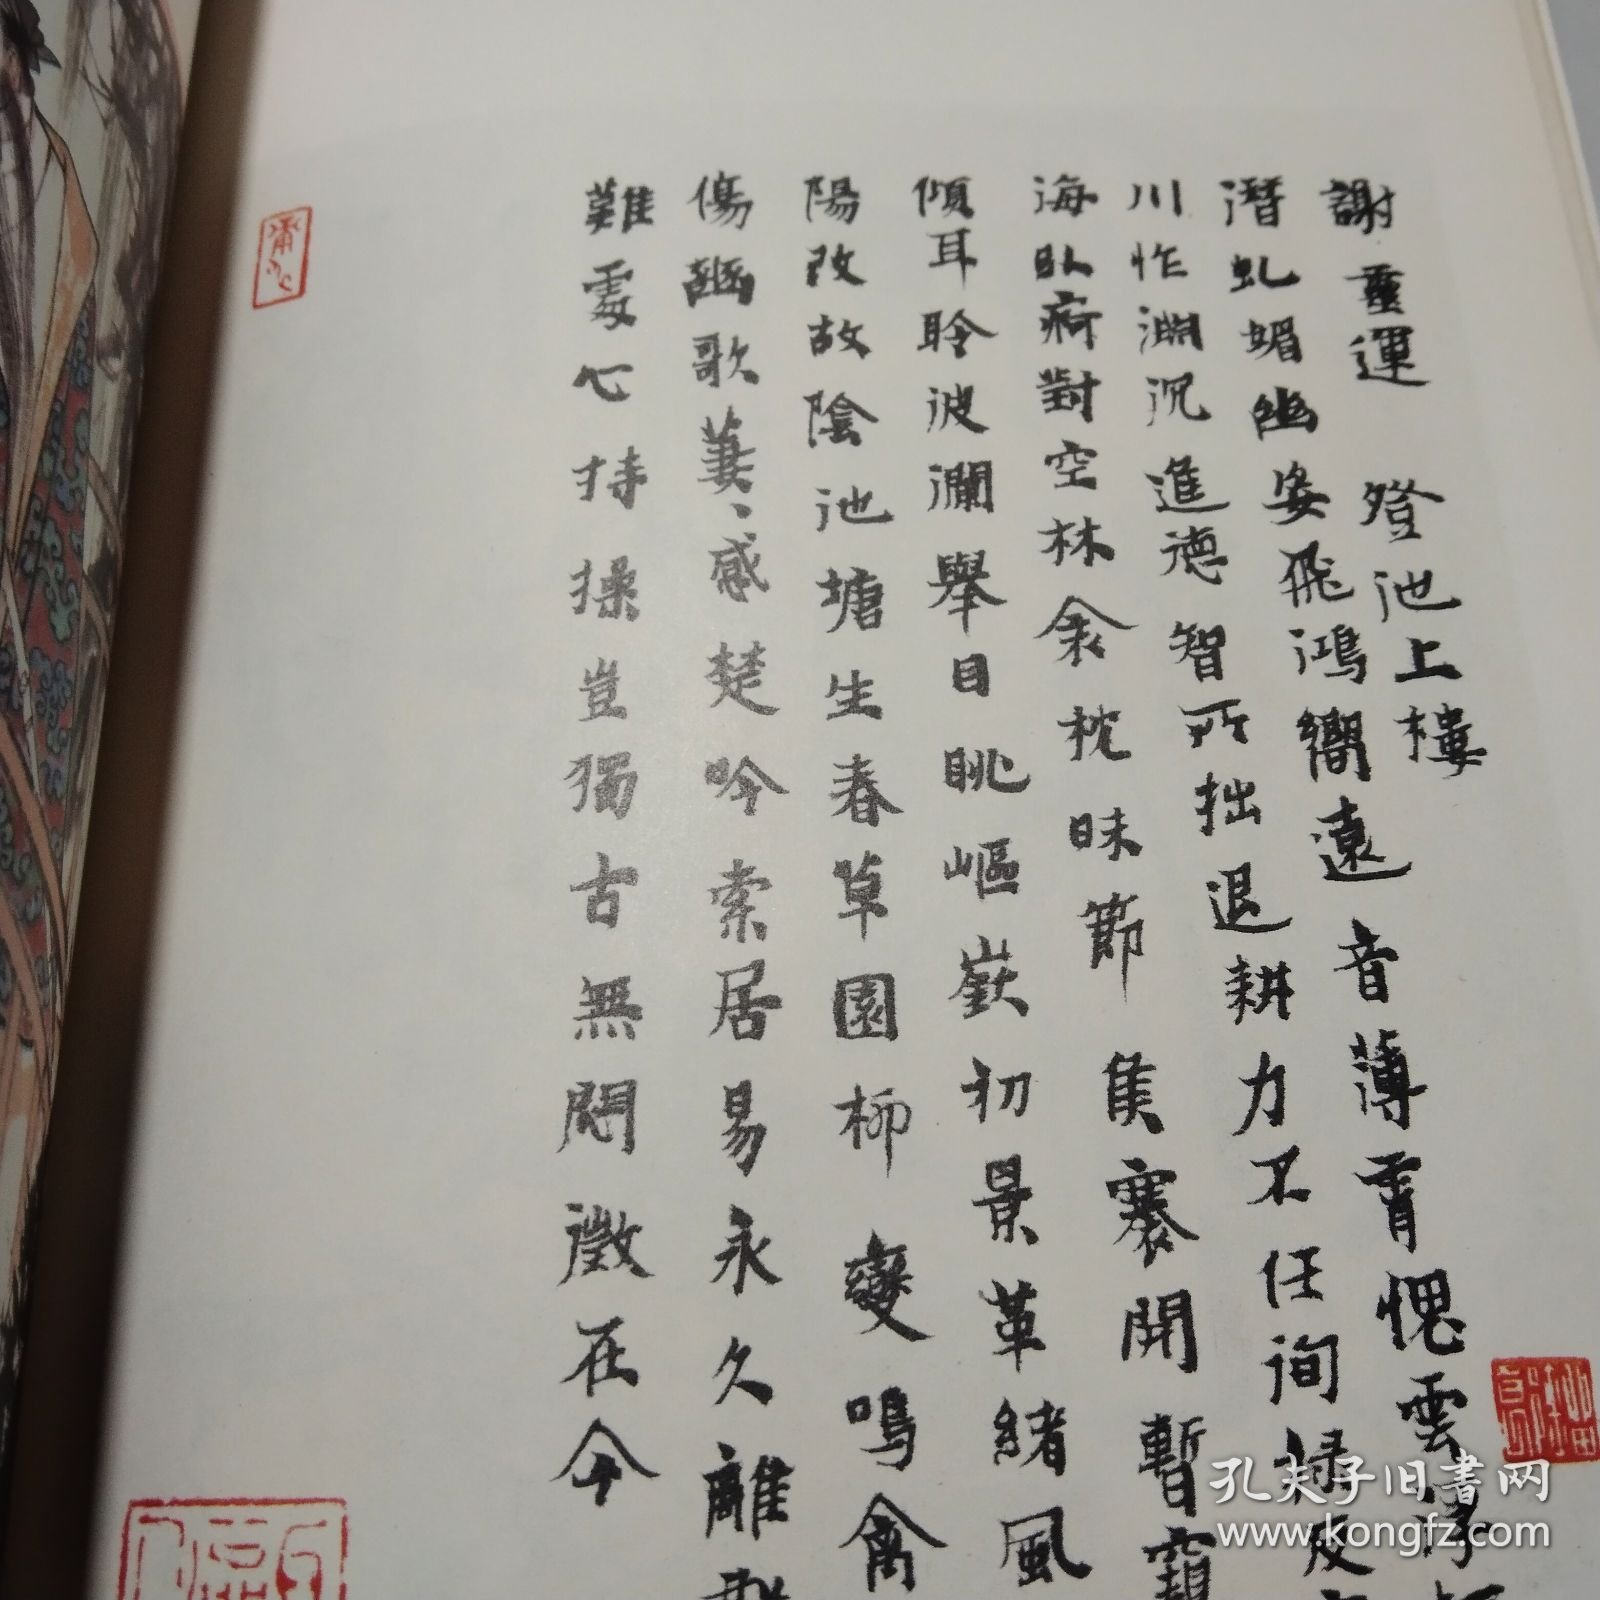 謝靈運 登池上樓
潛虬媚幽姿飛鴻響遠音薄霄愧雲浮棲
川怍淵沉進德智所拙退耕力不任徇祿反
海臥痾對空林衾枕昧節候褰開暫窺
傾耳聆波瀾舉目眺嶇嶔初景革緒風
陽改故陰池塘生春草園柳變鳴禽
傷豳歌萋、感楚吟索居易永久離群
難處心持操豈獨古無悶徵在今
孔夫子旧书网
www.kongfz.com